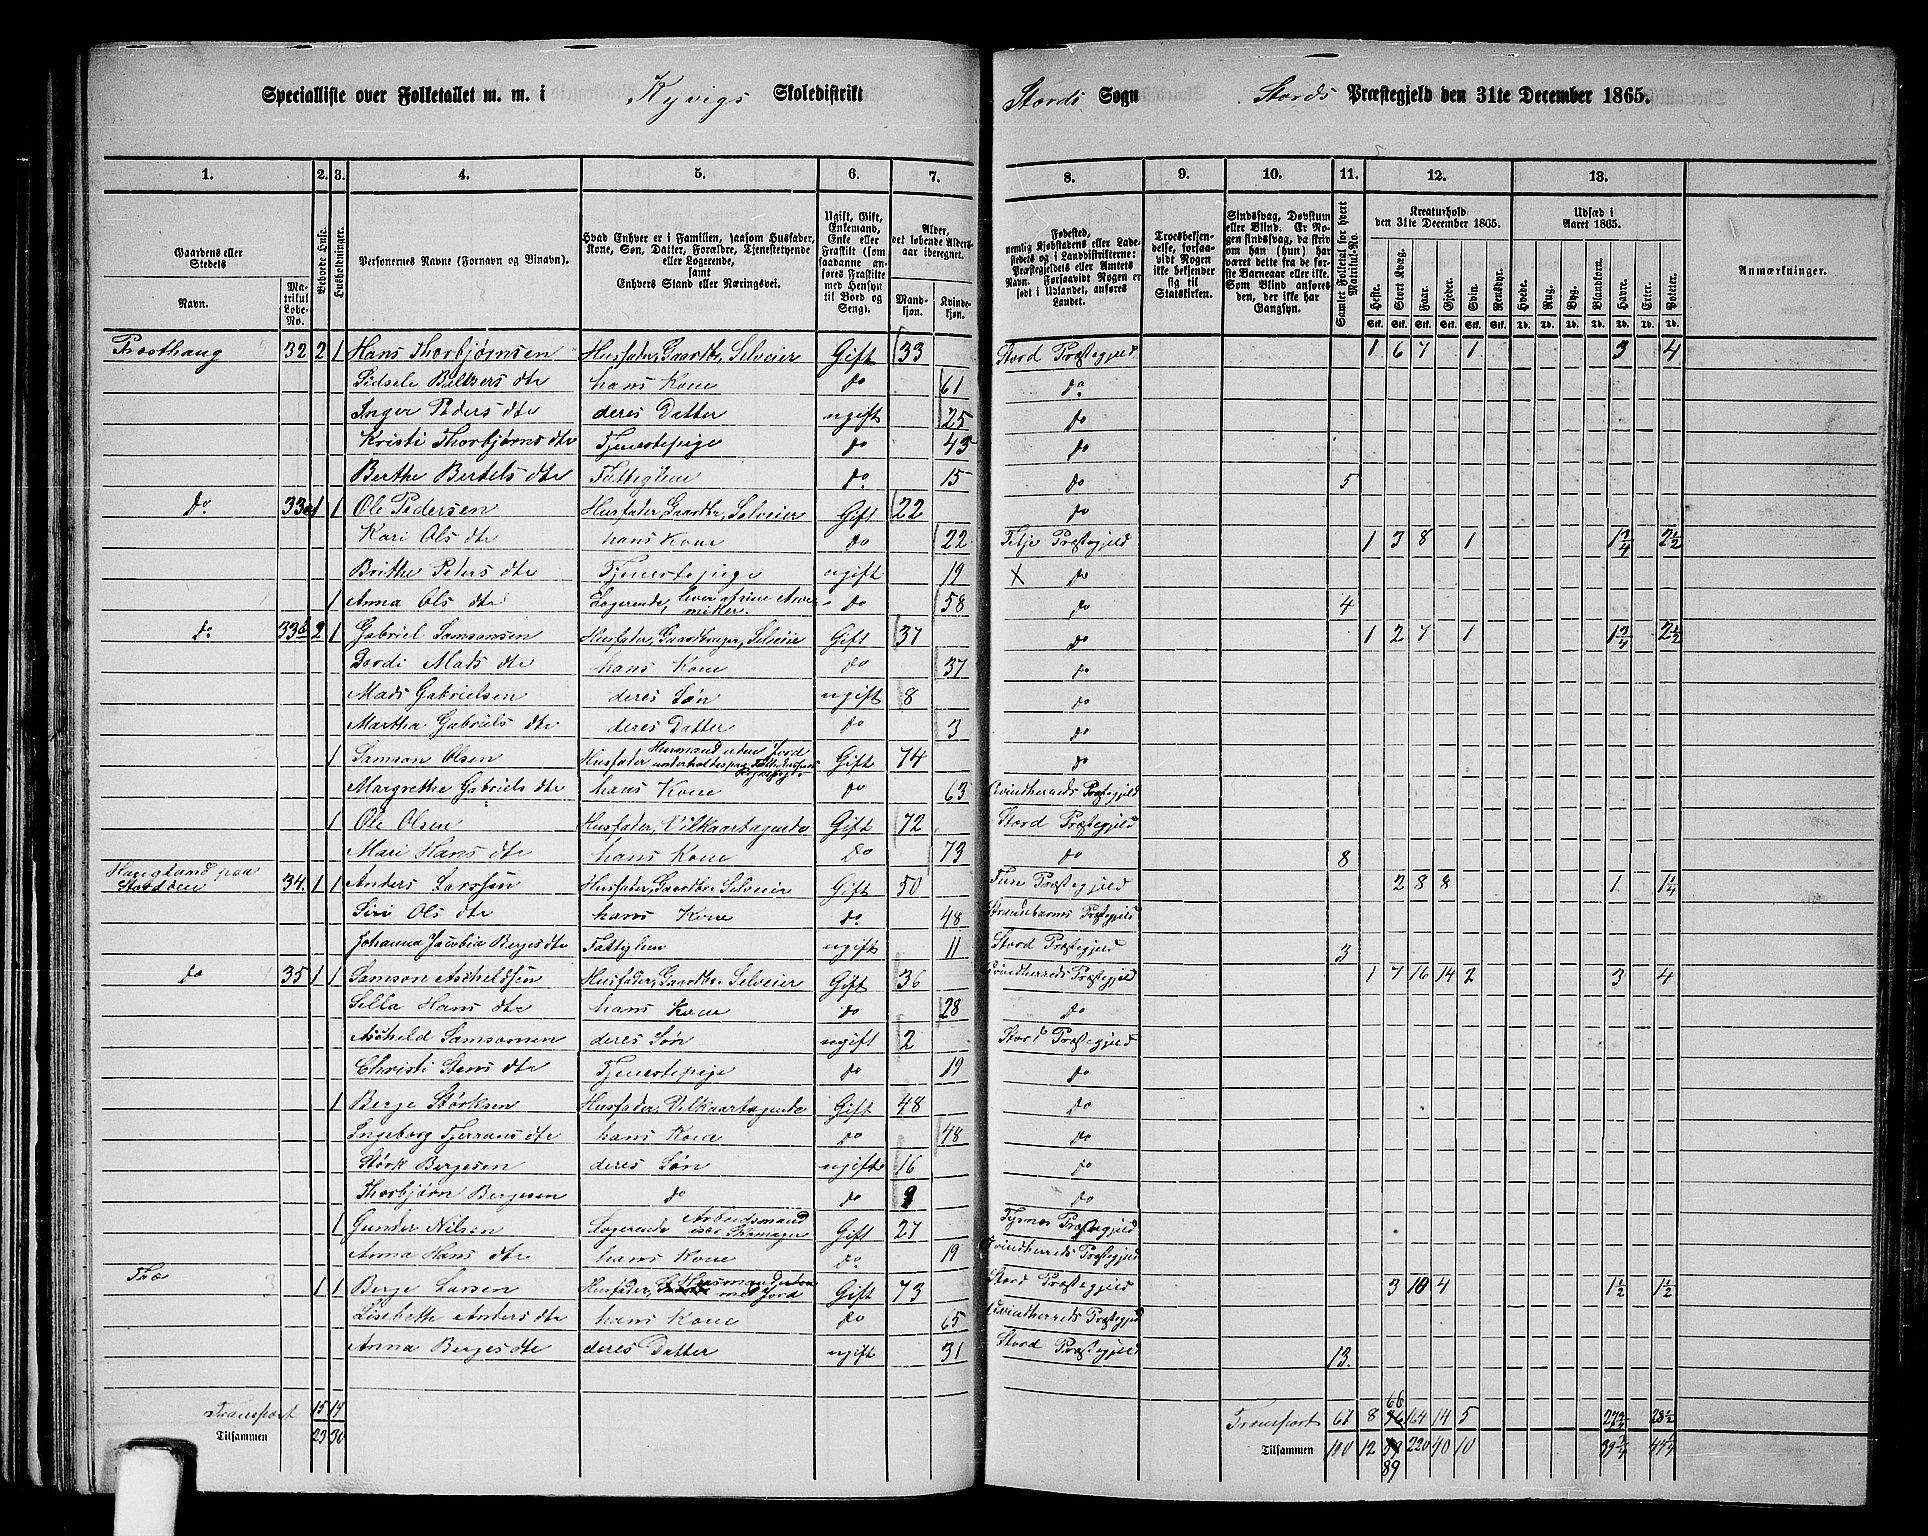 Specialliste over Folketallet m. m. i Kyvigs Skoledistrikt Stords Sogn Stords Præstegjeld den 31te December 1865.
1. 2. 3. 4. 5. 6. 7. 8. 9. 10. 11. 12. 13.
Gaardens eller Stedets Navn. Matrikul Løbe-No. Beboede Huse. Husholdninger. Personernes Navne (Fornavn og Binavn). Hvad Enhver er i Familien, saasom Husfader, Kone, Søn, Datter, Forældre, Tjenestetyende eller Logerende, samt Enhvers Stand eller Næringsvei. Ugift, Gift, Enkemand, Enke eller Fraskilt (som saadanne anføres Fraskilte med Hensyn til Bord og Seng). Alder, det løbende Aldersaar iberegnet. Mandkjøn. Kvindekjøn. Fødested, nemlig Kjøbstadens eller Ladestedets og i Landdistrikterne: Præstegjeldets eller Amtets Navn. Forsaavidt Nogen er født i Udlandet, anføres Landet. Troesbekjendelse, forsaavidt Nogen ikke bekjender sig til Statskirken. Sindssvag, Døvstum eller Blind. Er Nogen sindssvag, da skrives om han (hun) har været dette fra de første Barneaar eller ikke. Som Blind anføres den, der ikke har Gangsyn. Samlet Folketal for hvert Matrikul-No. Kreaturhold den 31te December 1865. Heste. Stort Kvæg. Faar. Gjeder. Svin. Rensdyr. Udsæd i Aaret 1865. Hvede. Rug. Byg. Blandkorn. Havre. Erter. Poteter. Anmærkninger.
Stk. Stk. Stk. Stk. Stk. Stk. Td. Td. Td. Td. Td. Td. Td.
Præsthaug 32 2 1 Hans Thorbjørnsen Husfader, Gaardbr. Selveier Gift 33 Stord Præstegjeld 1 6 7 1 3 4
Sidsele Baltzers dtr hans Kone do 61 do
Inger Peders dtr deres Datter ugift 25 do
Kristi Thorbjørns dtr Tjenestepige do 45 do
Berthe Bertels dtr Fattiglem do 15 do 5
do 33a 1 1 Ole Pedersen Husfader, Gaardbr. Selveier Gift 22 do
Kari Ols dtr hans Kone do 22 Fitje Præstegjeld 1 3 8 1 1 3/4 2 1/2
Brithe Peters dtr Tjenestepige ugift 19 X do
1 Anna Ols dtr Logerende, lever af sine Arvemidler. do 58 do 4
do 33b 2 1 Gabriel Samsonsen Husfader, Gaardbruger, Selveier Gift 37 do 1 2 7 1 1 3/4 2 1/2
Dordi Mats dtr hans Kone do 37 do
Mads Gabrielsen deres Søn ugift 8 do
Martha Gabriels dtr deres Datter do 3 do
1 Samson Olsen Husfader Husmand uden Jord Gift 74 do
Margrethe Gabriels dtr hans Kone do 63 Qvindherreds Præstegjeld
1 Ole Olsen Husfader, Vilkaartagende Gift 72 Stord Præstegjeld
Mari Hans dtr hans Kone do 73 do 8
Haugland paa Stordøen 34. 1 1 Anders Larssen Husfader, Gaardbr. Selveier Gift 50 Fuse Præstegjeld 2 8 8 1 1 1/4
Siri Ols dtr hans Kone do 48 Strandebarms Præstegjeld
Johanna Jacobia Berges dtr Fattiglem ugift 11 Stord Præstegjeld 3
do 35 1 1 Samson Ascheldsen Husfader, Gaardbr. Selveier Gift 36 Qvindherreds Præstegjeld 1 7 16 14 2 3 4
Silla Hans dtr hans Kone do 28 do
Ascheld Samsonsen deres Søn ugift 2 Stord Præstegjeld
Christi Stens dtr Tjenestepige do 19 do
1 Berge Størksen Husfader, Vilkaartagende Gift 48 do
Ingeborg dtr hans Kone do 48 do
Størk Bergesen deres Søn ugift 16 do
Thorbjørn Bergesen do do 9 do
1 Gunder Nilsen Logerende Arbeidsmand Gift 27 Tysnes Præstegjeld
Anna Hans dtr hans Kone do 19 Qvindherreds Præstegjeld
Træ 1 1 Berge Larsen Husfader, Husmand med Jord Gift 73 Stord Præstegjeld 3 10 4 1/2 1 1/2
Lisebethe Anders dtr hans Kone do 65 Qvindherreds Præstegjeld
Anna Berges dtr deres Datter ugift 31 Stord Præstegjeld 13.
Transport 15 19 Transport 67 8 66 164 14 5 27 3/4 28 1/2
Tilsammen 23 30 Tilsammen 100 12 89 220 40 10 39 3/4 44 1/4